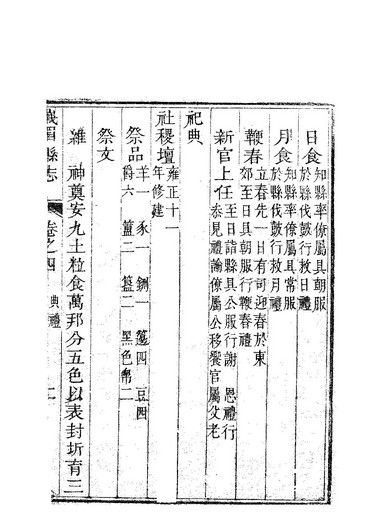 日食 知縣率僚屬具朝服
於縣伐鼓行救日禮
月食 知縣率僚屬具常服
於縣伐鼓行救月禮
鞭春 立春先一日有司迎春於東
郊至日具朝服行鞭春禮
新官上任 至日詣縣具公服行謝 恩禮行
叅見禮諭僚屬公移饗官屬父老
祀典
社稷壇 雍正十一
年修建
祭品 羊一 豕一 鉶一 籩四 豆四
爵六 簠二 簋二 黑色帛二
祭文
維 神奠安九土粒食萬邦分五色以表封圻育三
峩眉縣志 卷之四 典禮 二